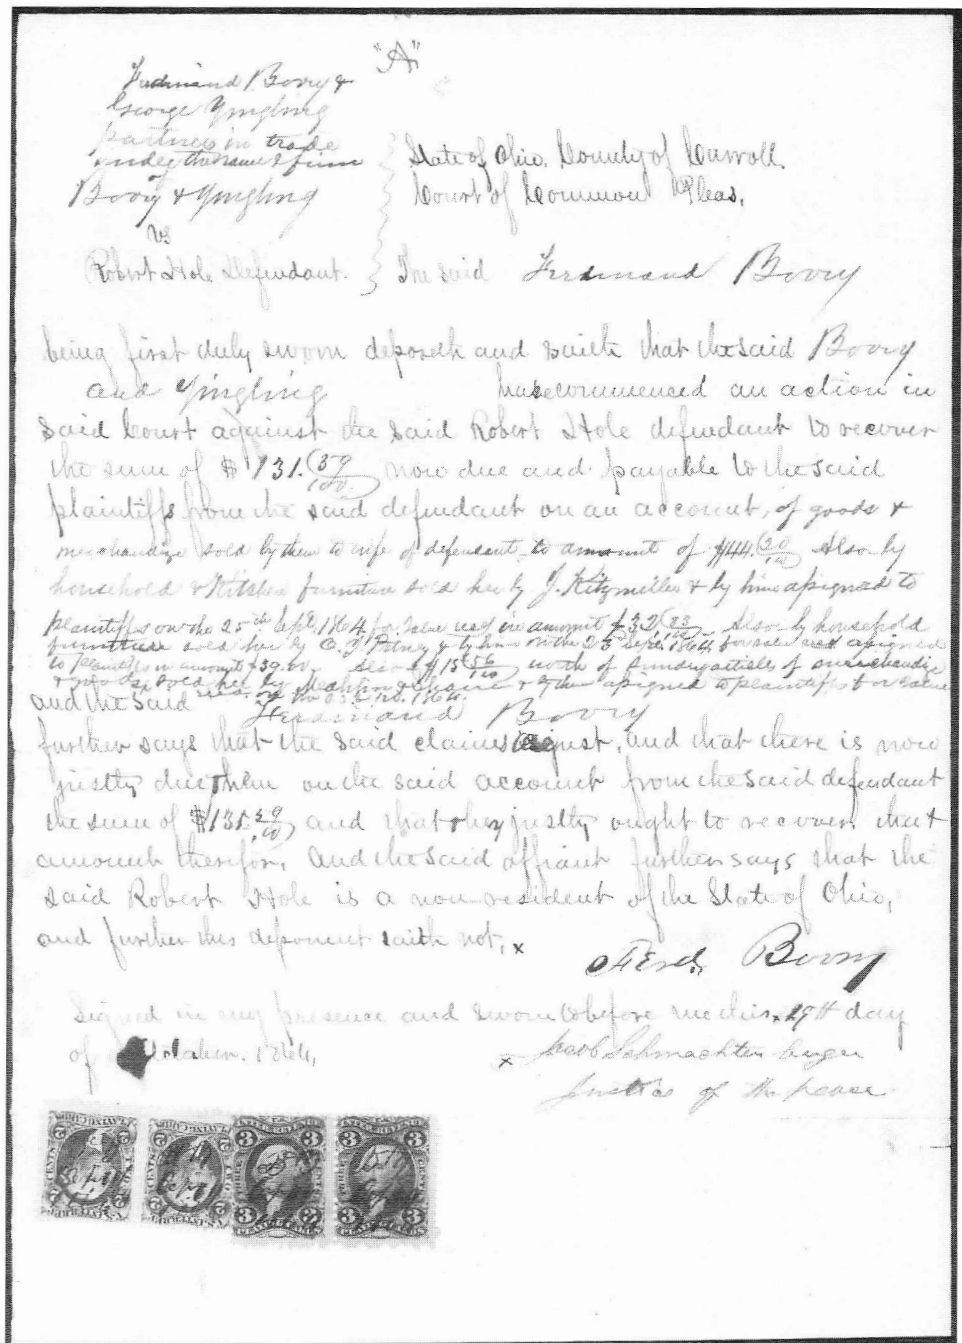 "A"
Ferdinand Bovry &
George Yingling
partners in trade
under the name & firm
of
Bovry & Yingling
vs
Robert Hole Defendant.
State of Ohio, County of Carroll.
Court of Common Pleas,
The said Ferdinand Bovry
being first duly sworn deposeth and saith that the said Bovry
and Yingling have commenced an action in
said Court against the said Robert Hole defendant to recover
the sum of $131.59/100 now due and payable to the said
plaintiffs from the said defendant on an account, of goods &
merchandize sold by them to wife of defendant to amount of $44.20/100 Also by
household & Kitchen furniture sold her by J. Kitzmiller & by him assigned to
plaintiffs on the 25th Sept. 1864, for value recd in amount $32.83/100 Also by household
furniture sold her by & by him on the 25 Sept. 1864 for value recd assigned
to plaintiffs in amount $39.00. Also of 15.56/100 worth of sundry articles of merchandize
& goods sold her by & by them assigned to plaintiffs for value
and the said Ferdinand Bovry
further says that the said claim is just, and that there is now
justly due them on the said account from the said defendant
the sum of $131.59/100 and that they justly ought to recover that
amount therefor, And the said affiant further says that the
said Robert Hole is a non-resident of the State of Ohio,
and further this deponent saith not, x
Ferd. Bovry
Signed in my presence and sworn to before me this 29th day
of October. 1864,
x Jacob Schmachtenberger
Justice of the peace
2 2 2 2 3 3 3 3
CENTS
3 3 3 3